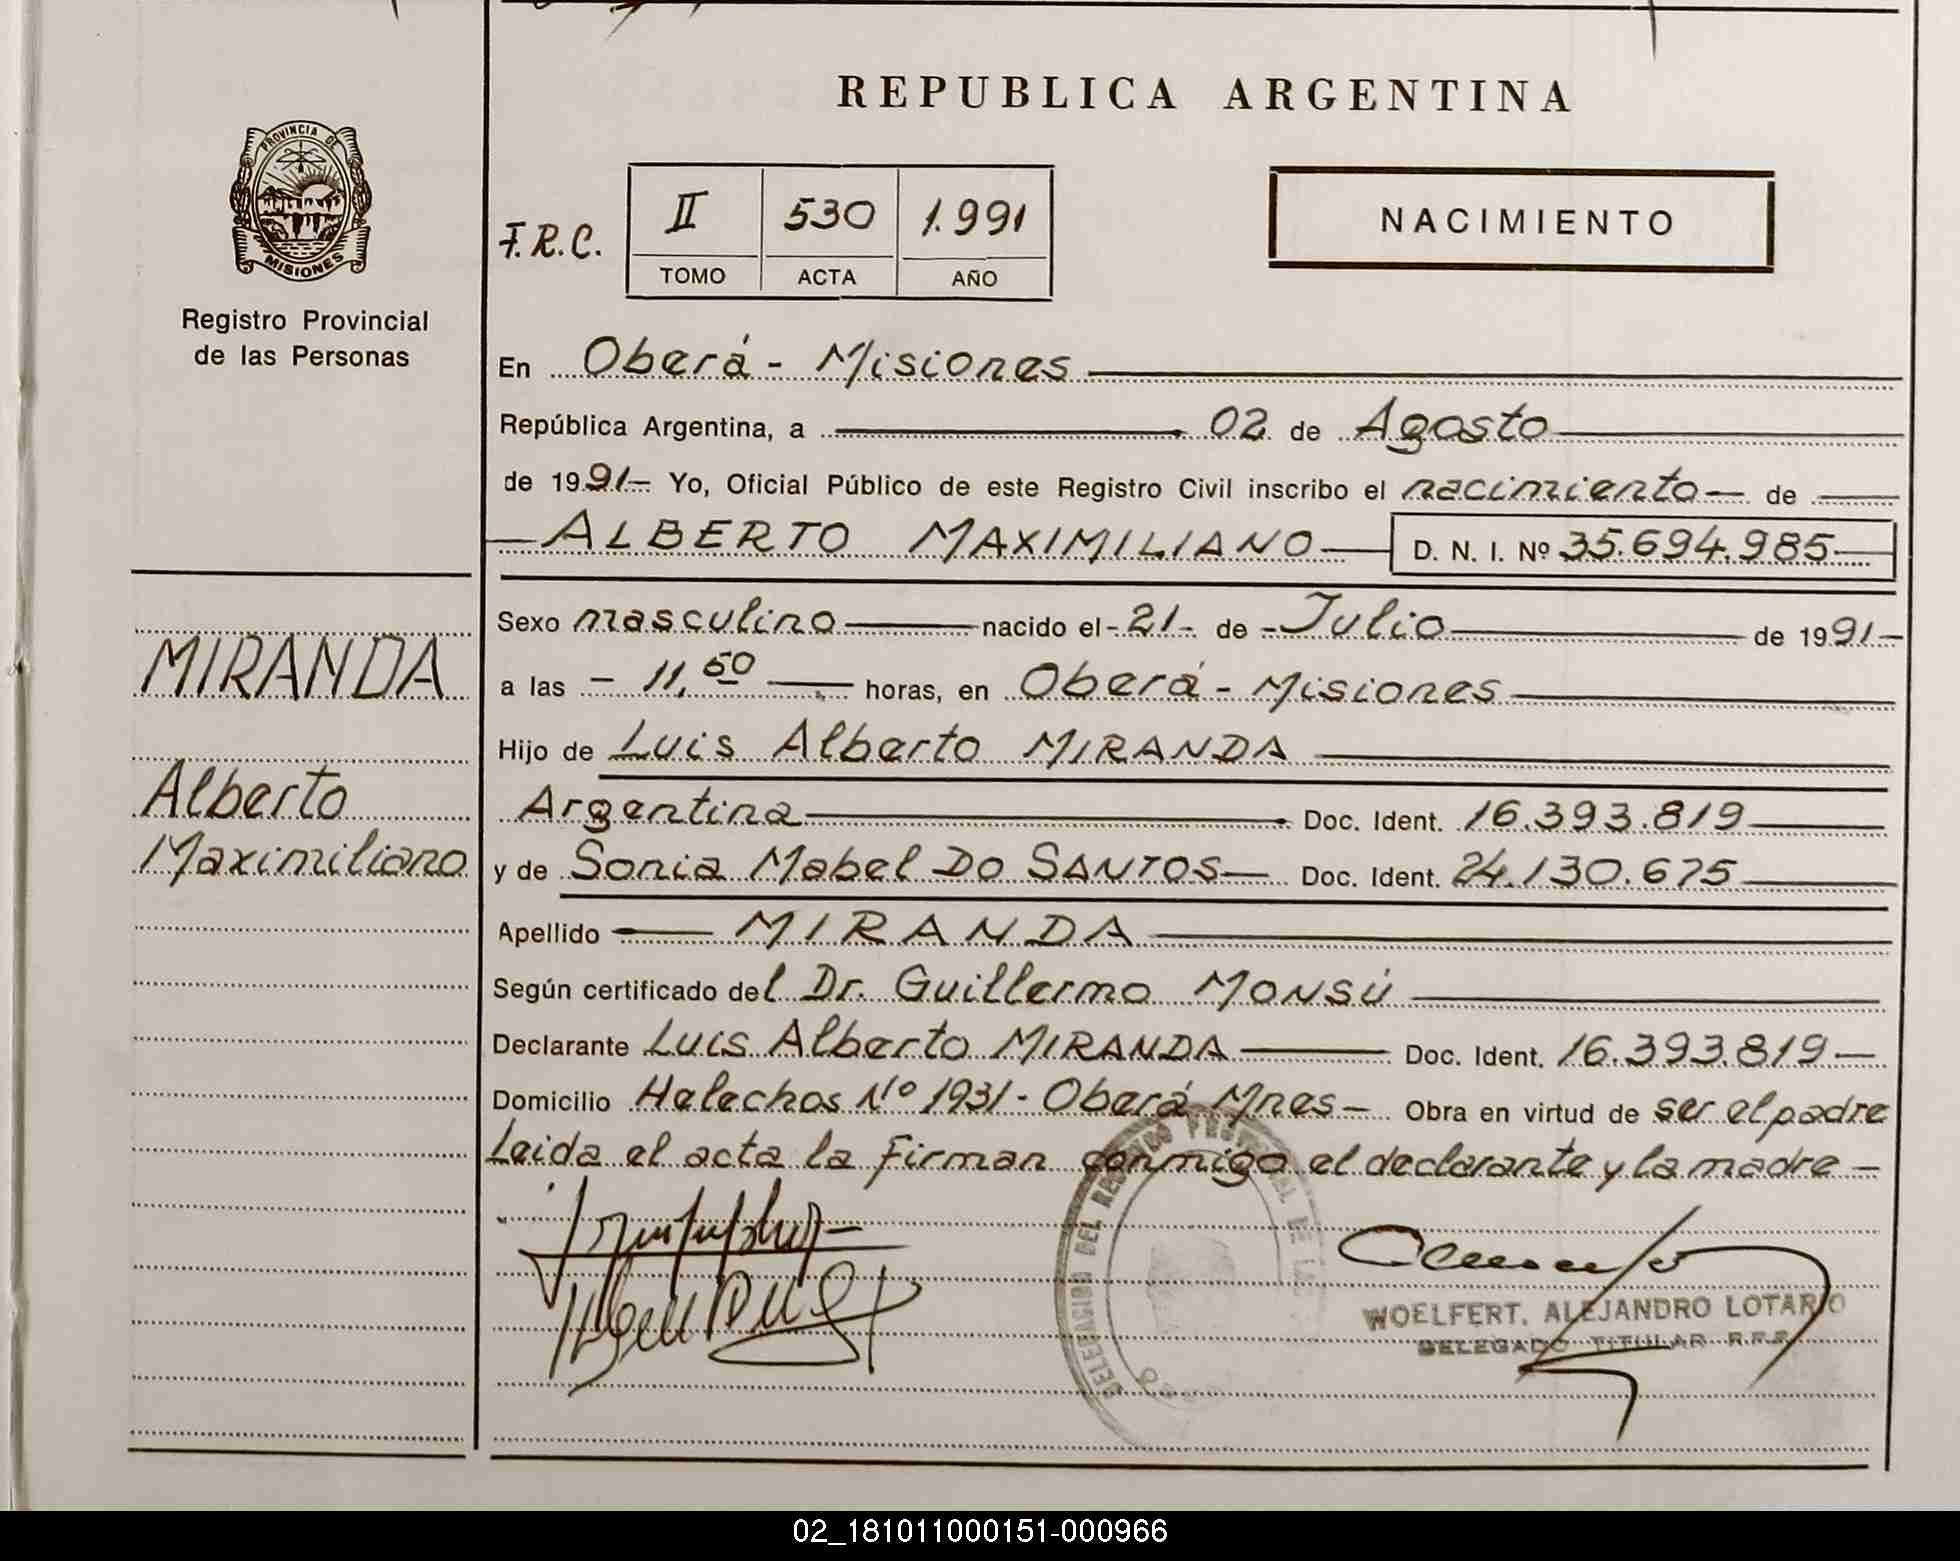 REPUBLICA ARGENTINA
PROVINCIA DE
MISIONES
Registro Provincial
de las Personas
F.R.C.
II 530 1.991
TOMO ACTA AÑO
NACIMIENTO
En Oberá - Misiones
República Argentina, a 02 de Agosto
de 1991- Yo, Oficial Público de este Registro Civil inscribo el nacimiento de
ALBERTO MAXIMILIANO D. N. I. Nº 35.694.985
MIRANDA
Alberto
Maximiliano
Sexo masculino nacido el -21- de -Julio de 1991-
a las - 11,50 horas, en Oberá - Misiones
Hijo de Luis Alberto MIRANDA
Argentina Doc. Ident. 16.393.819
y de Sonia Mabel DO SANTOS Doc. Ident. 24.130.675
Apellido MIRANDA
Según certificado del Dr. Guillermo MONSÚ
Declarante Luis Alberto MIRANDA Doc. Ident. 16.393.819
Domicilio Helechos Nº 1931 - Oberá Mnes- Obra en virtud de ser el padre
Leida el acta la firman conmigo el declarante y la madre -
DELEGACION DEL REGISTRO PROVINCIAL DE LA
WOELFERT, ALEJANDRO LOTARIO
DELEGADO TITULAR R.P.P.
02_181011000151-000966